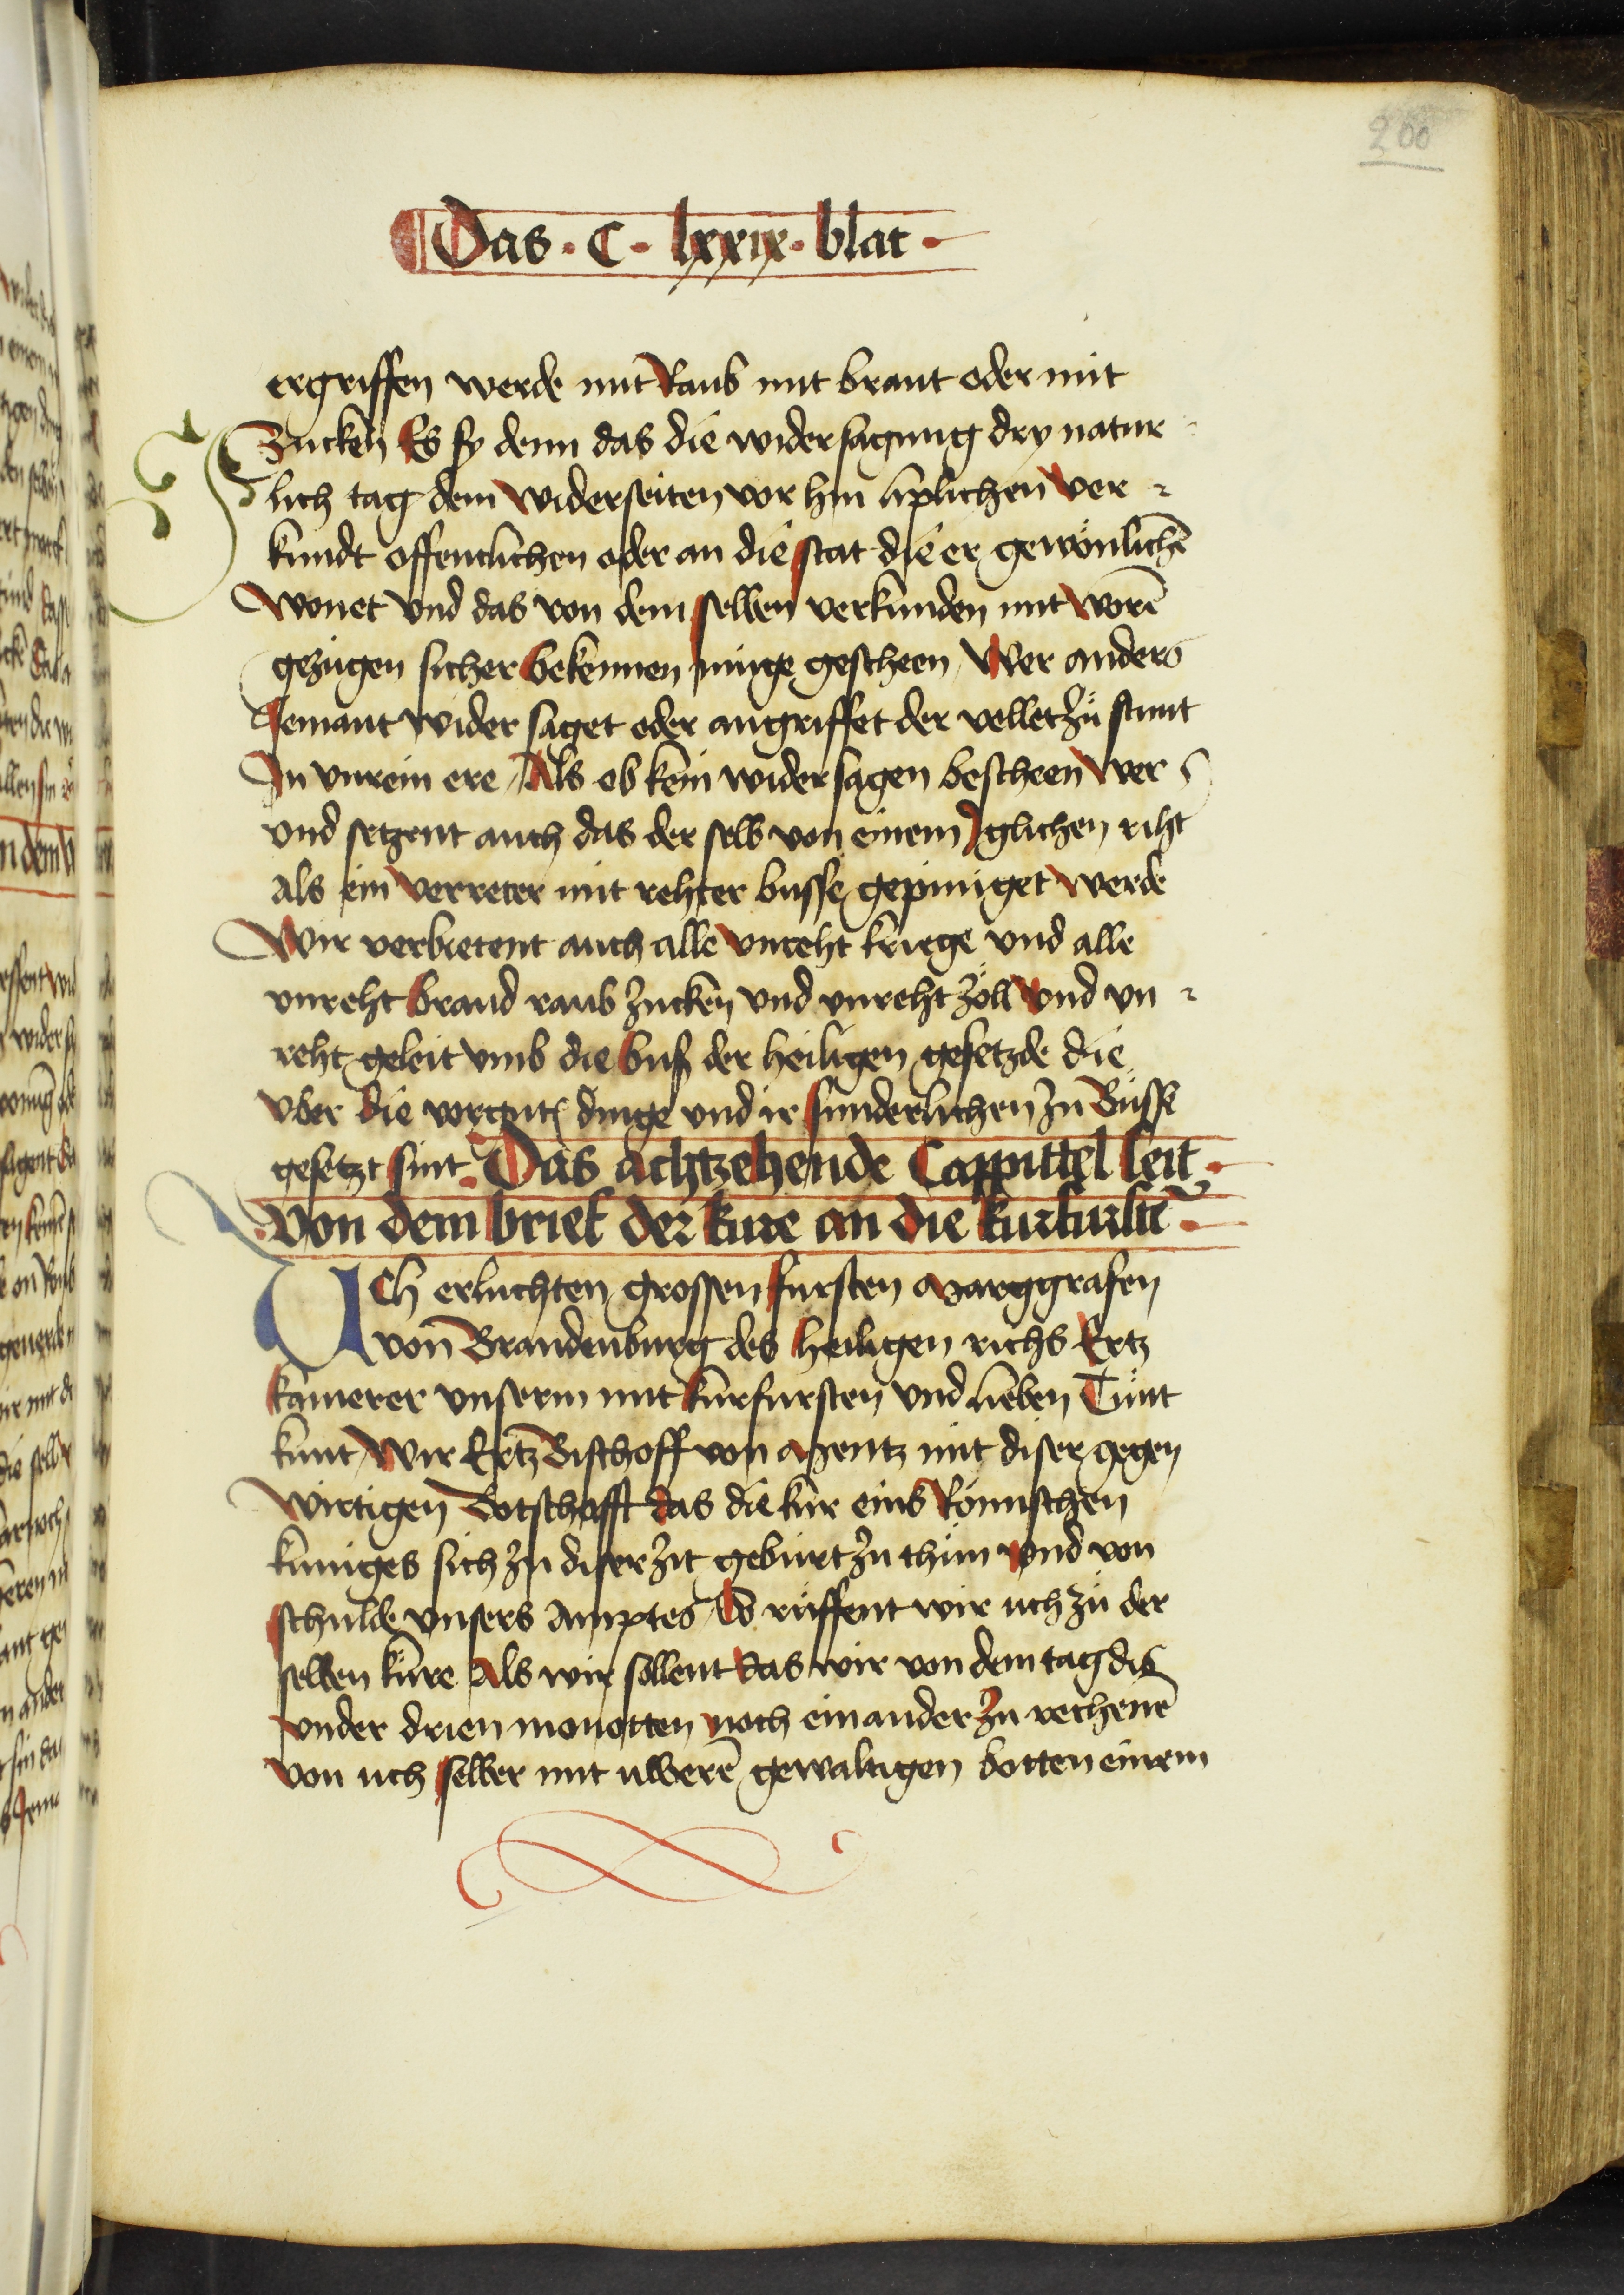 200
Das · C · lxxix · blat ·
ergriffen werde mit Raub mit brant oder mit
Zucken Es sy denn das die widersagung dry natur
lich tag dem widerseiten vor hin liplichen ver
kundt offentlichen oder an die stat die er gewönlichē
wonet vnd das von dem selben verkunden mit worē
gezugen sicher bekennen muge gescheen Wer anders
Jemant wider saget oder angriffet der vellet zů stunt
In vnrein ere Als ob kein widersagen bescheen wer
vnd setzent auch das der selb von einem yglichen riht
als ein verreter mit rehter busse gepiniget werde
Wir verbietent auch alle vnreht kriege vnd alle
vnreht brand raub zucken vnd vnreht zöll vnd vn
reht geleit vmb die buß der heiligen gesetzde die
vber die vorgnt dinge vnd ir sunderlichen zu Busse
gesetzt sint · Das achtzehende Cappittel seit ·
· von dem brief der kure an die kurfurstē ·
Uch erluchten grossen fursten Marggrafen
von Brandenburg des heiligen richs Ertz
kamerer vnserm mit kurfursten vnd lieben Tůnt
kunt Wir Ertz Bischoff von Mentz mit diser gegen
wirtigen Botschafft das die kur eins Römischen
kuniges sich zu diser zit geburt zu thun vnd von
schulde vnsers Amptes So růffent wir uch zů der
selben kure Als wir sollent das wir von dem tag dis
vnder drien monotten noch einander zu rechenē
von uch selber mit uwerē gewaltigen botten einem